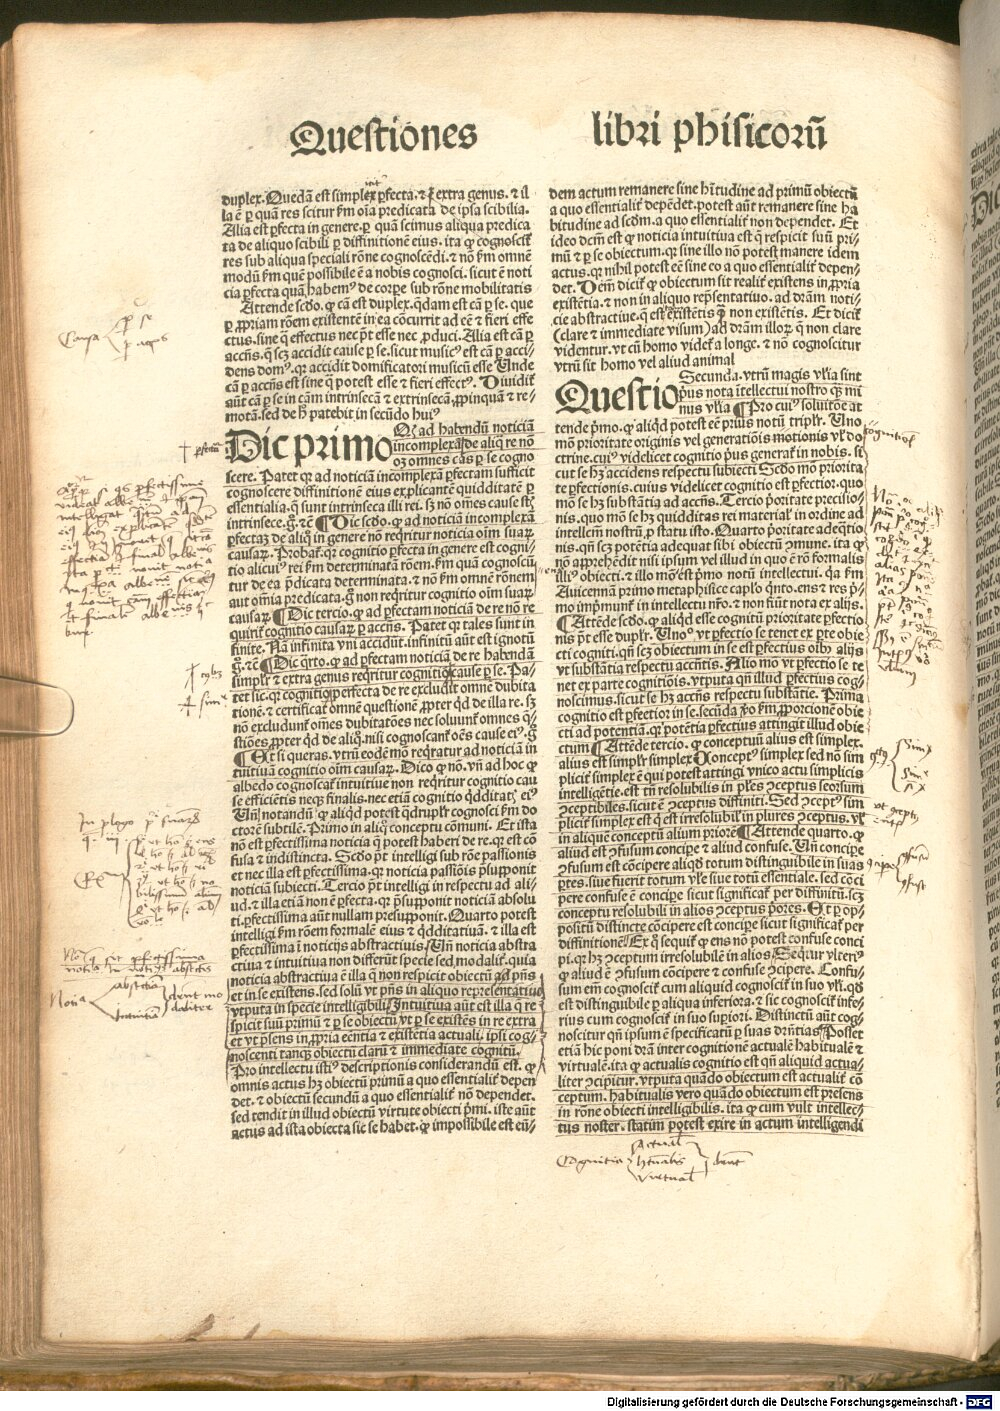 Questiones libri phisicorū
duplex. Quedā est simplex ꝑfecta. ⁊ ē extra genus. ⁊ il
la ē ꝑ quā res scitur ẜm oīa predicata de ipsa scibilia.
Alia est ꝑfecta in genere. ꝑ quā scimus aliqua predica
ta de aliquo scibili ꝑ diffinitionē eius. ita ꝙ cognoscit̄
res sub aliqua speciali rōne cognoscēdi. ⁊ nō ẜm omnē
modū ẜm quē possibile ē a nobis cognosci. sicut ē noti
cia ꝑfecta quā habemꝰ de corꝑe sub rōne mobilitatis
Attende scd̄o. ꝙ cā est duplex. q̄dam est cā ꝑ se. que
ꝑ ꝓpriam rōem existentē in ea cōcurrit ad eē ⁊ fieri effe
ctus. sine q̄ effectus nec pōt esse nec ꝓduci. Alia est cā ꝑ
accn̄s. q̄ scꝫ accidit cause ꝑ se. sicut musicꝰ est cā ꝑ acci
dens domꝰ. qꝛ accidit domificatori musicū esse Unde
cā ꝑ accn̄s est sine q̄ potest esse ⁊ fieri effectꝰ. Diuidit̄
aūt cā ꝑ se in cām intrinsecā ⁊ extrinsecā, ꝓpinquā ⁊ re⸗
motā. sed de hͦ patebit in secūdo huiꝰ
Dic primo ꝙ ad habendū noticiā
incomplexā de aliq̄ re nō
oꝫ omnes cās ꝑ se cogno
scere. Patet qꝛ ad noticiā incomplexā ꝑfectam sufficit
cognoscere diffinitionē eius explicantē quidditatē ꝑ
essentialia. q̄ sunt intrinseca illi rei. sꝫ nō om̄es cause sūt
intrinsece. ḡ. ⁊c̄ ¶ Dic scd̄o. ꝙ ad noticiā incomplexā
ꝑfectaꝫ de aliq̄ in genere nō req̄ritur noticia oīm suaꝝ
causaꝝ. Probat̄. qꝛ cognitio ꝑfecta in genere est cogni⸗
tio alicuiꝰ rei ẜm determinatā rōnem. ẜm quā cognosci
tur de ea p̄dicata determinata. ⁊ nō ẜm omnē rōnem
aut om̄ia predicata. ḡ non req̄ritur cognitio oīm suaꝝ
causaꝝ ¶ Dic tercio. ꝙ ad ꝑfectam noticiā de re nō re
quirit̄ cognitio causaꝝ ꝑ accn̄s. Patet qꝛ tales sunt in
finite. Nā infinita vni accidūt. infinitū aūt est ignotū
ḡ. ⁊c̄ ¶ Dic q̄rto. ꝙ ad ꝑfectam noticiā de re habendā
simplr̄ ⁊ extra genus req̄ritur cognitio cause ꝑ se. Pa⸗
tet sic. qꝛ cognitio perfecta de re excludit omnē dubita
tionē. ⁊ certificat omnē questionē ꝓpter q̄d de illa re. sꝫ
nō excludunt̄ om̄es dubitatōes nec soluunt̄ omnes q̄⸗
stiōes ꝓpter q̄d de aliq̄. nisi cognoscant̄ oēs cause eiꝰ. ḡ
¶ Et si queras. vtrū eodē mō req̄ratur ad noticiā in
tuitiuā cognitio oīm causaꝝ. Dico ꝙ nō. vn̄ ad hoc ꝙ
albedo cognoscat̄ intuitiue non req̄ritur cognitio cau
se efficiētis neqꝫ finalis. nec etiā cognitio q̄dditatꝭ eiꝰ
Un̄ notandū ꝙ aliqd̄ potest q̄drupl̄r cognosci ẜm do
ctorē subtilē. Primo in aliq̄ conceptu cōmuni. Et ista
nō est ꝑfectissima noticia q̄ potest haberi de re. qꝛ est cō
fusa ⁊ indistincta. Scd̄o pōt intelligi sub rōne passionis
et nec illa est ꝑfectissima. qꝛ noticia passiōis p̄supponit
noticiā subiecti. Tercio pōt intelligi in respectu ad ali⸗
ud. ⁊ illa etiā non ē ꝑfecta. qꝛ p̄supponit noticiā absolu
ti. ꝑfectissima aūt nullam presupponit. Quarto potest
intelligi ẜm rōem formalē eius ⁊ q̄dditatiuā. ⁊ illa est
ꝑfectissima ī noticijs abstractiuis. Un̄ noticia abstra
ctiua ⁊ intuitiua non differūt specie sed modalit̄. quia
noticia abstractiua ē illa q̄ non respicit obiectū ad p̄ns
et in se existens. sed solū vt p̄ns in aliquo representatiuo
vtputa in specie intelligibili. Intuitiua aūt est illa q̄ re
spicit suū primū ⁊ ꝑ se obiectū vt ꝑ se existēs in re extra
et vt p̄sens in ꝓpria eēntia ⁊ existētia actuali. ipsi cog⸗
noscenti tanqꝫ obiectū clarū ⁊ immediate cognitū.
Pro intellectu istiꝰ descriptionis considerandū est. ꝙ
omnis actus hꝫ obiectū primū a quo essentialit̄ depen
det. ⁊ obiectū secundū a quo essentialit̄ nō dependet.
sed tendit in illud obiectū virtute obiecti p̄mi. iste aūt
actus ad ista obiecta sic se habet. ꝙ impossibile est eū⸗
dem actum remanere sine hītudine ad primū obiectū
a quo essentialit̄ depēdet. potest aūt remanere sine ha
bitudine ad scd̄m. a quo essentialit̄ non dependet. Et
ideo dcm̄ est ꝙ noticia intuitiua est q̄ respicit suū pri⸗
mū ⁊ ꝑ se obiectum. qꝛ sine illo nō potest manere idem
actus. qꝛ nihil potest eē sine eo a quo essentialit̄ depen⸗
det. Dein̄ dicit̄ ꝙ obiectum sit realit̄ existens in ꝓpria
existētia. ⁊ non in aliquo rep̄sentatiuo. ad dr̄am noti⸗
cie abstractiue. q̄ est existētis ꝙ non existētis. Et dicit̄
(clare ⁊ immediate visum) ad dr̄am illoꝝ q̄ non clare
videntur. vt cū homo videt̄ a longe. ⁊ nō cognoscitur
vtrū sit homo vel aliud animal
Questio Secunda. vtrū magis vl̄ia sint
p̄us nota ītellectui nostro qꝫ mi
nus vl̄ia ¶ Pro cuiꝰ solutiōe at
tende p̄mo. ꝙ aliqd̄ potest eē prius notū tripl̄r. Uno
mō prioritate originis vel generatiōis motionis vl̄ do
ctrine. cuiꝰ videlicet cognitio p̄us generat̄ in nobis. si
cut se hꝫ accidens respectu subiecti Scd̄o mō priorita
te ꝑfectionis. cuius videlicet cognitio est ꝑfectior. quo
mō se hꝫ substātia ad accn̄s. Tercio p̄oritate precisio⸗
nis. quo mō se hꝫ quidditas rei material̄ in ordine ad
intellectū nostrū ꝓ statu isto. Quarto p̄oritate adeq̄tio
nis. qn̄ scꝫ potētia adequat sibi obiectū ↄmune. ita ꝙ
nō app̄hēdit nisi ipsum vel illud in quo ē rō formalis
illiꝰ obiecti. ⁊ illo mō est p̄mo notū intellectui. q̄a ẜm
Auicennam primo metaphisice caplo q̄nto. ens ⁊ res p̄⸗
mo īmp̄munt̄ in intellectu nr̄o. ⁊ non fiūt nota ex alijs.
¶ Attēde scd̄o. ꝙ aliqd̄ esse cognitū prioritate ꝑfectio
nis pōt esse duplr̄. Unoᵒ vt ꝑfectio se tenet ex ꝑte obie
cti cogniti. qn̄ scꝫ obiectum in se est ꝑfectius oībꝰ alijs
vt substātia respectu accn̄tis. Alio mō vt ꝑfectio se te⸗
net ex parte cognitiōis. vtputa qn̄ illud ꝑfectius cog⸗
noscimus. sicut se hꝫ accn̄s respectu substātie. Prima
cognitio est ꝑfectior in se. secūda v̄o ẜm ꝓporcionē obie
cti ad potentiā. qꝛ potētia ꝑfectius attingit illud obie
ctum ¶ Attēde tercio. ꝙ conceptuū alius est simplex.
alius est simplr̄ simplex. Conceptꝰ simplex sed nō sim
plicit̄ simplex ē qui potest attingi vnico actu simplicis
intelligētie. est tn̄ resolubilis in pl̄es ↄceptus seorsum
ↄceptibiles. sicut ē ↄceptus diffiniti. Sed ↄceptꝰ sim
plicit̄ simplex est q̄ est irresolubil̄ in plures ↄceptus. vl̄
in aliquē conceptū alium priorē ¶ Attende quarto. ꝙ
aliud est ↄfusum concipe ⁊ aliud confuse. Un̄ concipe
ↄfusum est cōcipere aliqd̄ totum distinguibile in suas
ꝑtes. siue fuerit totum vl̄e siue totū essentiale. sed cōci
pere confuse ē concipe sicut significat̄ per diffinitū. scꝫ
conceptu resolubili in alios ↄceptus p̄ores. Et ꝑ op⸗
positū distincte cōcipere est concipe sicut significat̄ per
diffinitionē Ex q̄ sequit̄ ꝙ ens nō potest confuse conci
pi. qꝛ hꝫ ↄceptum irresolubilē in alios. Seq̄tur vlteriꝰ
ꝙ aliud ē ↄfusum cōcipere ⁊ confuse ↄcipere. Confu⸗
sum em̄ cognoscit̄ cum aliquid cognoscit̄ in suo vl̄i. qd̄
est distinguibile ꝑ aliqua inferiora. ⁊ sic cognoscit̄ infe⸗
rius cum cognoscit̄ in suo suꝑiori. Distinctū aūt cog⸗
noscitur qn̄ ipsum ē specificatū ꝑ suas dr̄ntias Posset
etiā hic poni dr̄ā inter cognitionē actualē habitualē ⁊
virtualē. ita ꝙ actualis cognitio est qn̄ aliquid actua⸗
liter ↄcipitur. vtputa quādo obiectum est actualit̄ cō
ceptum. habitualis vero quādo obiectum est presens
in rōne obiecti intelligibilis. ita ꝙ cum vult intellec⸗
tus noster. statim potest exire in actum intelligendi
Causa ꝑ se
Cognitio actual̄ hītualis virtual̄
Digitalisierung gefördert durch die Deutsche Forschungsgemeinschaft - DFG